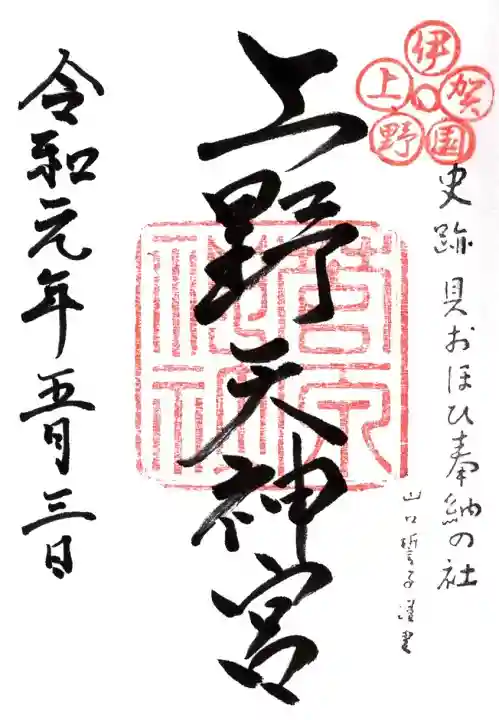 伊賀國上野
史跡 貝おほひ奉納の社
山口誓子
上野天神宮
菅原神社
令和元年五月三日